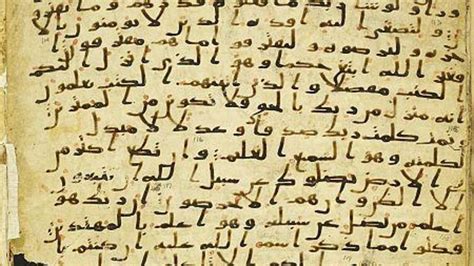 ولو شا ربك ما فعلوه فذرهم وما يفتر
ون ولتصغى اليه افده الذين لا يومنون بالا
خره وليرضوه وليقترفوا ما هم مقترفون ا
فغير الله ابتغي حكما وهو الذي انزل اليكم
الكتب مفصلا والذين اتينهم الكتب يعلمون
انه منزل من ربك بالحق فلا تكونن من الممترين
وتمت كلمت ربك صدقا وعدلا لا مبدل
لكلمته وهو السميع العليم وان تطع اكثر من
في الارض يضلوك عن سبيل الله ان يتبعون
الا الظن وان هم الا يخرصون ان ربك هو
اعلم من يضل عن سبيله وهو اعلم بالمهتدين
فكلوا مما ذكر اسم الله عليه ان كنتم